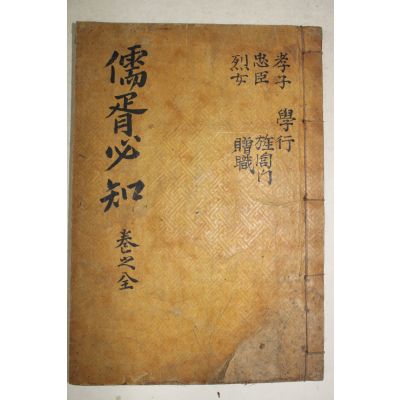 孝子
忠臣
烈女
學行
旌閭門
贈職
儒胥必知
卷之全